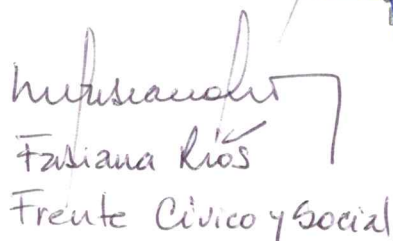 Fabiana Ríos
Frente Cívico y Social